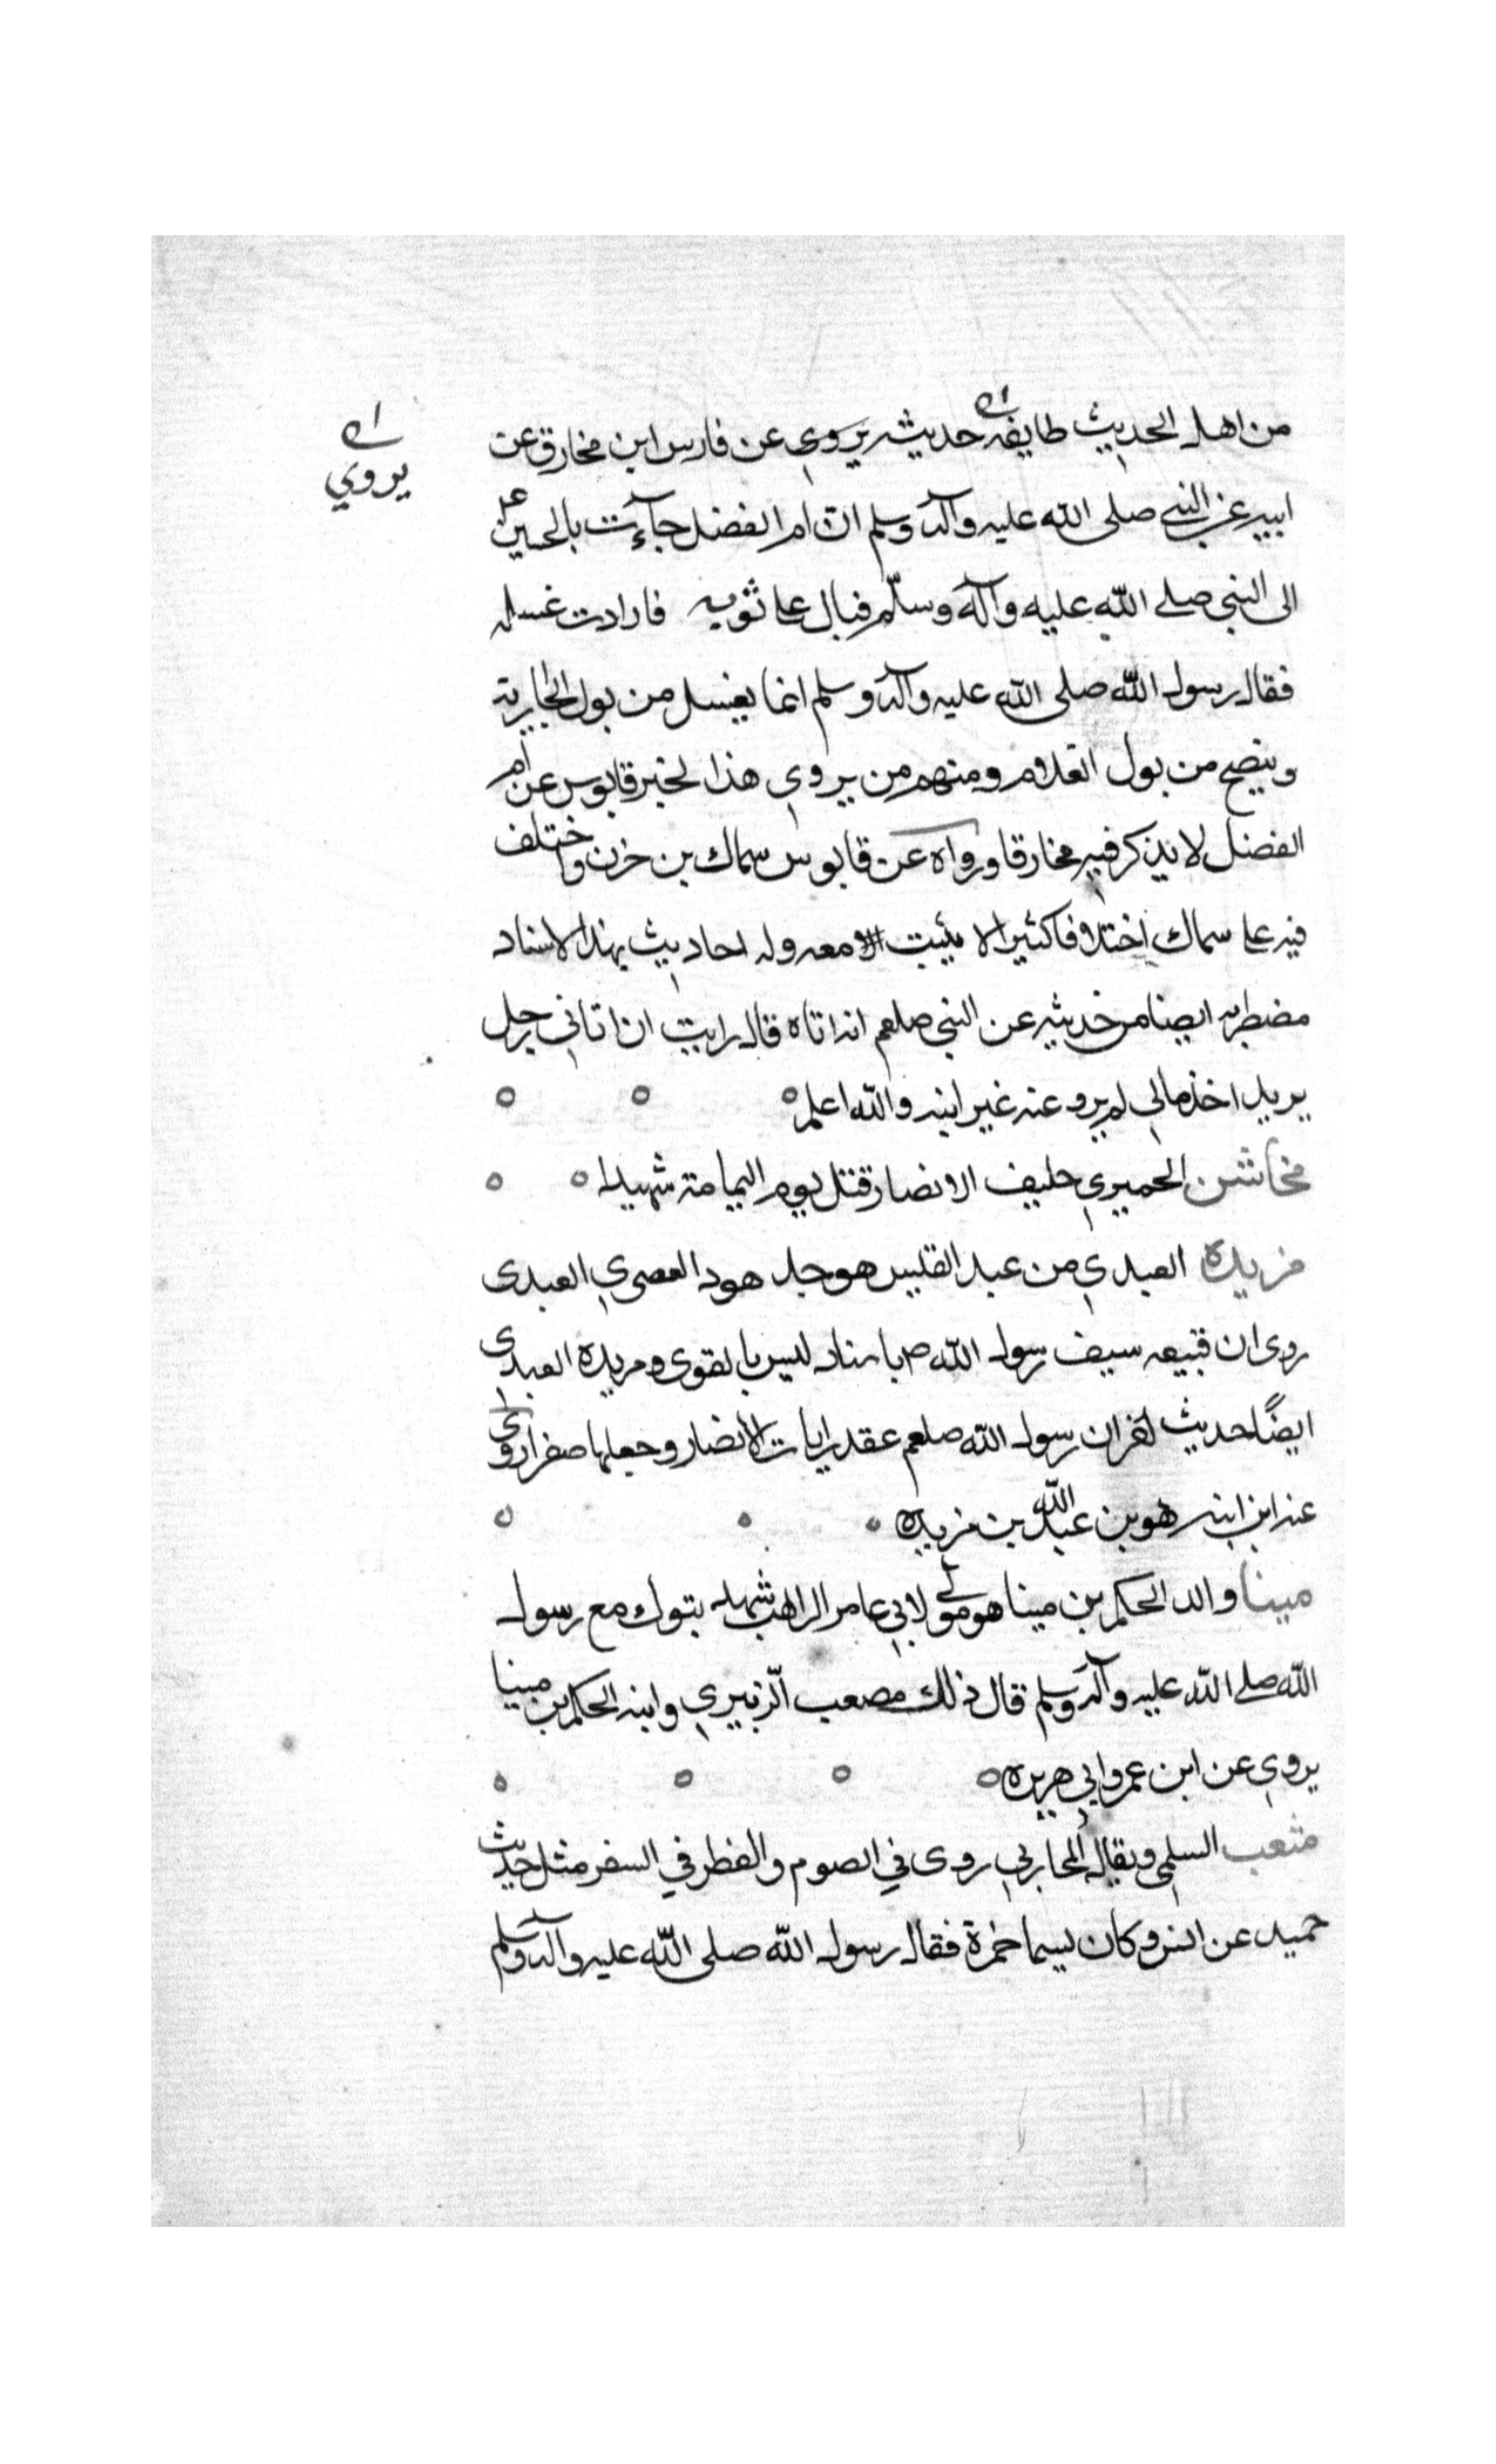 من اهل الحديث طايفه حديثه يروي عن فارس ابن مخارق عن
يروي
ابيه عن النبي صلى الله عليه وآله وسلم ان ام الفضل جآءت بالحسين
الى النبي صلى الله عليه وآله وسلّم فبال على ثوبه فارادت غسله
فقال رسول الله صلى الله عليه وآله وسلم انما يغسل من بول الجارية
وينضح من بول الغلام ومنهم من يروي هذا لخبر قابوس عن ام
الفضل لا يذكر فيه مخارقا ورواه عن قابوس سماك بن خزن واختلف
فيه على سماك اختلافا كثيرا لا يثبت معه وله احاديث بهذا الاسناد
مضطربه ايضا من حديثه عن النبي صلعم انه اتاه قال رايت ان اتاني رجل
يريد اخذ مالي لم يرو عنه غير ابنه والله اعلم
مخاشن الحميري حليف الانصار قتل يوم اليمامة شهيدا
مزيده العبدي من عبد القيس هو جد هود العصري العبدى
روى ان قبيعه سيف رسول الله ص باسناد ليس بالقوى ومزيده العبدى
ايضًا حديث اخر ان رسول الله صلعم عقد رايات الانصار وجعلها صفرا روى
عنه ابن ابنه هو بن عبد الله بن مزيده
مينا والد الحكم بن مينا هو مولى لابي عامر الراهب شهد بتوك مع رسول
الله صلى الله عليه وآله وسلم قال ذلك مصعب الزبيري وابنه الحكم بن مينا
يروي عن ابن عمر وابي هريره
مثعب السلمي ويقال المحاربي روى في الصوم والفطر في السفر مثل حديث
حميد عن انس وكان يسما حمزة فقال رسول الله صلى الله عليه وآله وسلم